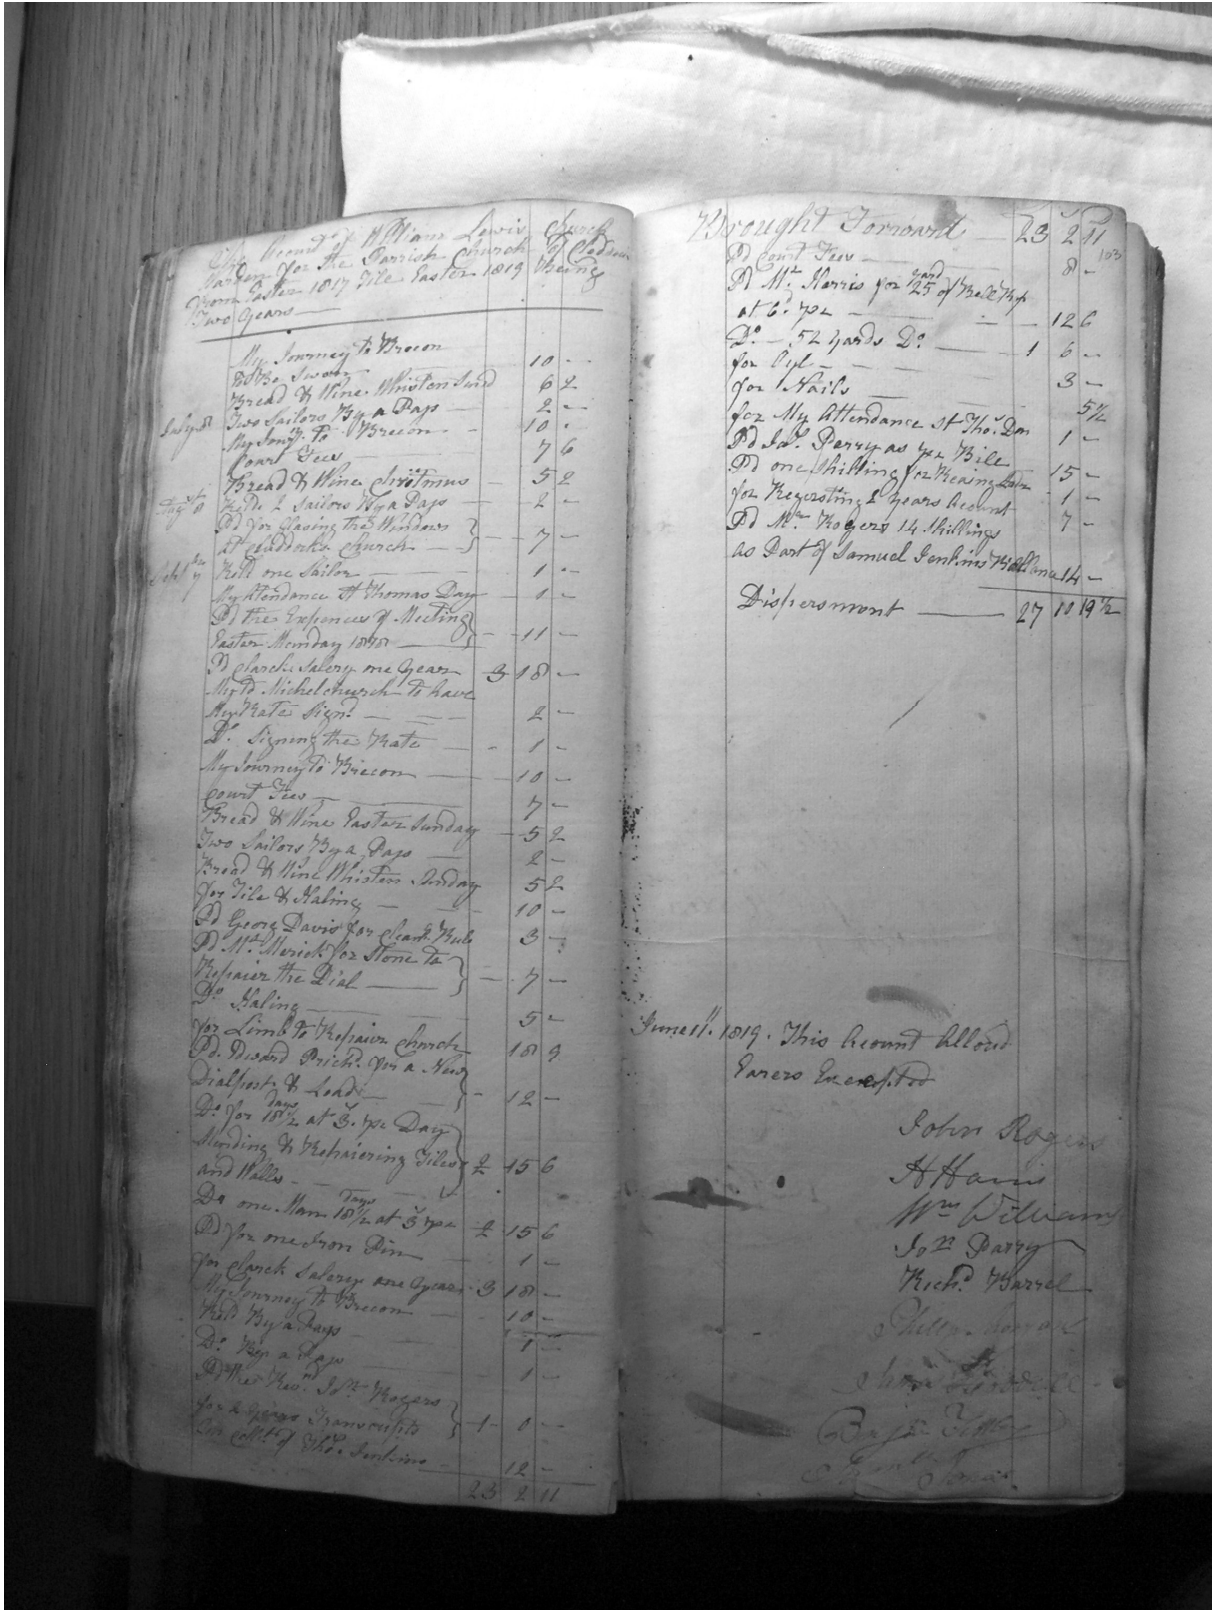 The Acount of William Lewis Church
Warden for the Parrish Church of Cloddock
From Easter 1817 Tile Easter 1819 Being
Two Years
My Journey to Brecon
to Be Sworn 10 -
Bread & Wine Whisten Sund 6 2
July 8 Two Sailors By a Pass 2 -
My Jowry. to Brecon 10 -
Court Fees 7 6
Bread & Wine Christmus 5 2
Reld. 2 Sailors By a Pass 2 -
Pd for Glasing the Windows
at Claddock Church 7 -
Reld one Sailor 1 -
My Atendance St Thomas Day 1 -
Pd the Expences of Meeting
Easter Monday 1818 11 -
Pd Clarck Salery one year 3 18 -
My to Michelchurch to have
My Rate Signd. 2 -
Do. Signing the Rate 1 -
My Journey to Brecon 10 -
Court Fees 7 -
Bread & Wine Easter Sunday 5 2
Two Sailors By a Pass 2 -
Bread & Wine Whisten Sunday 5 2
for Tile & Haling 10 -
Pd Georg Davis for 3 -
Pd Mr. Merick for Stone to
Repaier the Dial 7 -
Do Haling 5 -
for Limb to Repaier Church 18 9
Pd. Edward Prichd. for a New
Dialpost & Lead 12 -
Do for 18½ days at 3s. pr Day
Mending & Repaiering Tiles
and Walls 2 15 6
Do one Man 18½ days at 3 pr 2 15 6
Pd for one Iron Pin 1 -
for Clarck Salery one year 3 18 -
My Journey to Brecon 10 -
Reld By a Pass 1 -
Do. By a Pass 1 -
Pd the Revnd. Jon Rogers
for 2 years Transcripts 1 0 -
of Thos. Jenkins 12 -
23 2 11
Brought Forward 23 2 11
103
Pd Court Fees 8 -
Pd Mr. Harris for 25 yard of Bell Rop
at 6d. pr 12 6
Do - 52 yards Do. 1 6 -
for Oyl 3 -
for Nails 5½
for My Attendance St Thos. Day 1 -
Pd Jas. Parry as pr Bile 15 -
Pd one Shilling for 1 -
for Regersting 2 years Acount 7 -
Pd Mr Rogers 14 Shillings
as Part of Samuel Jenkins Ballance 14 -
Dispersmont 27 10 19½
June 11th. 1819. This Acount Alloud
Earers Excepted
John Rogers
H Harris
Wm William
Jon Parry
Richd. Barrel